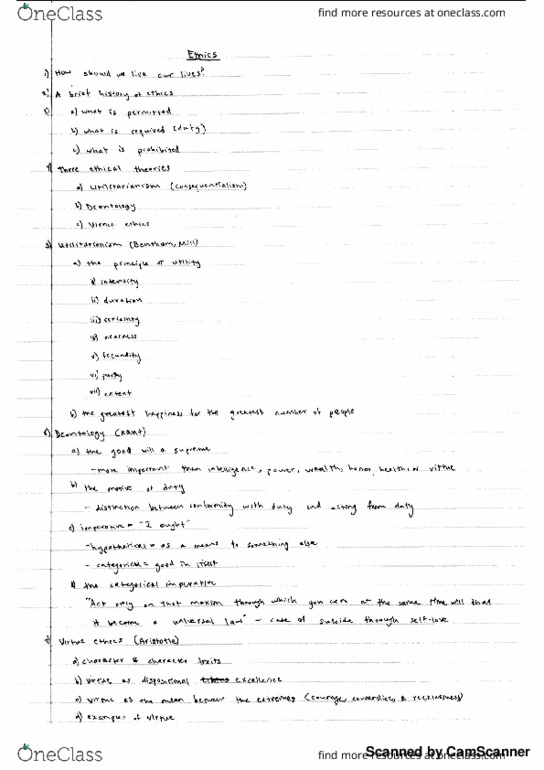 OneClass
find more resources at oneclass.com
Ethics
1) How should we live our lives?
2) A brief history of ethics
a) what is permitted
b) what is required (duty)
c) what is prohibited
4) Three ethical theories
a) Utilitarianism (consequentialism)
b) Deontology
c) Virtue ethics
5) Utilitarianism (Bentham, Mill)
a) the principle of utility
i) intensity
ii) duration
iii) certainty
iv) nearness
v) fecundity
vi) purity
vii) extent
b) the greatest happiness for the greatest number of people
6) Deontology (Kant)
a) the good will is supreme
- more important than intelligence, power, wealth, honor, health, or virtue
b) the motive of duty
- distinction between conformity with duty and acting from duty
c) imperative = "I ought"
- hypothetical = as a means to something else
- categorical = good in itself
d) the categorical imperative
"Act only on that maxim through which you can at the same time will that
it become a universal law" - case of suicide through self-love
7) Virtue ethics (Aristotle)
a) character & character traits
b) virtue as dispositional excellence
c) virtue as the mean between the extremes (courage, cowardice, & recklessness)
d) examples of virtue
OneClass
find more resources at oneclass.com
Scanned by CamScanner